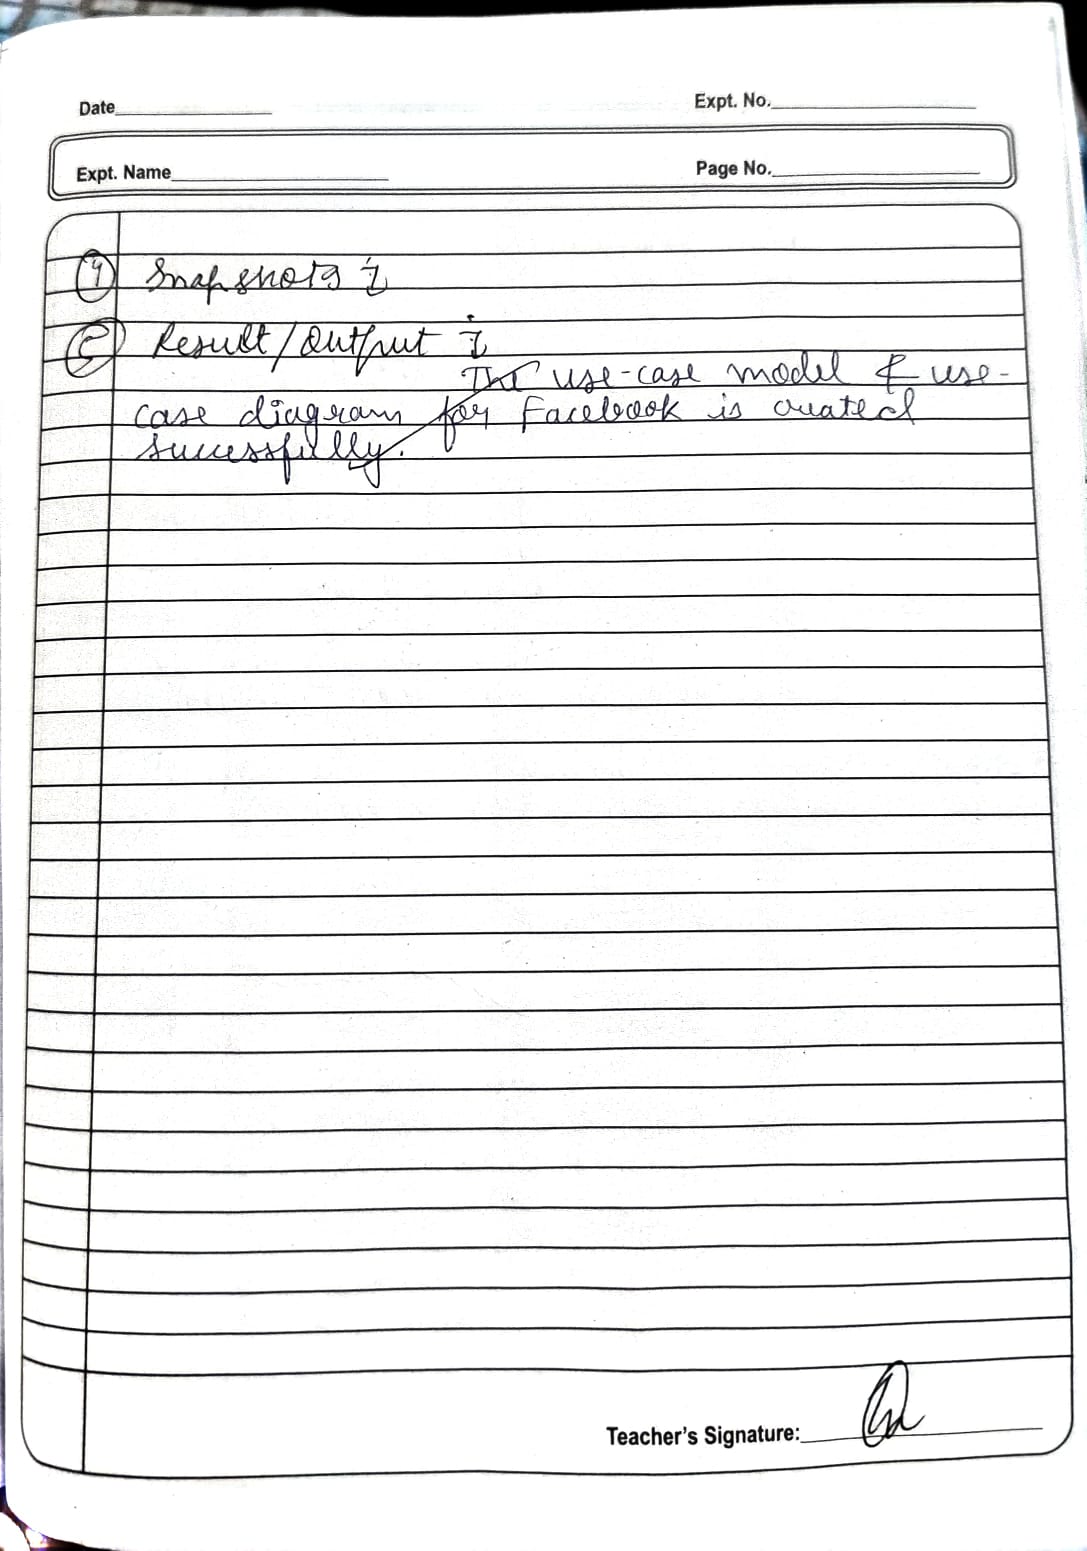 Date
Expt. No.
Expt. Name
Page No.
4 Snapshots :
5 Result/Output :
The use-case model & use-
case diagram for Facebook is created
successfully.
Teacher's Signature: